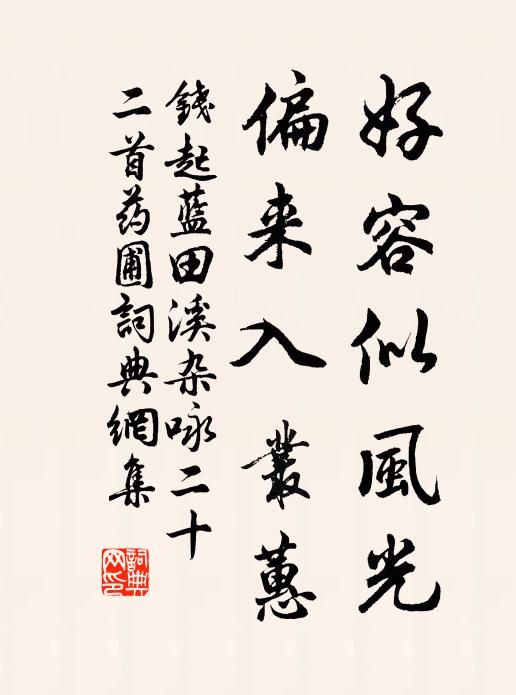 好容似風光
偏来入叢蕙
錢起藍田溪杂咏二十
二首药圃詞典網集
詞典
网印